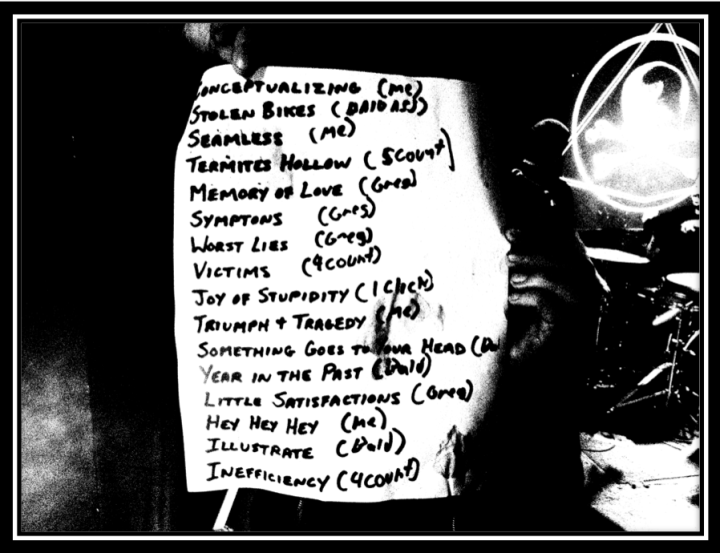 CONCEPTUALIZING (ME)
STOLEN BIKES (BALD ASS)
SEAMLESS (ME)
TERMITES HOLLOW (5 COUNT)
MEMORY OF LOVE (Greg)
SYMPTONS (Greg)
WORST LIES (Greg)
VICTIMS (4 COUNT)
JOY OF STUPIDITY (1 Click)
TRIUMPH + TRAGEDY (ME)
SOMETHING GOES TO YOUR HEAD (
YEAR IN THE PAST (Bald)
LITTLE SATISFACTIONS (Greg)
HEY HEY HEY (Me)
ILLUSTRATE (Bald)
INEFFICIENCY (4 COUNT)